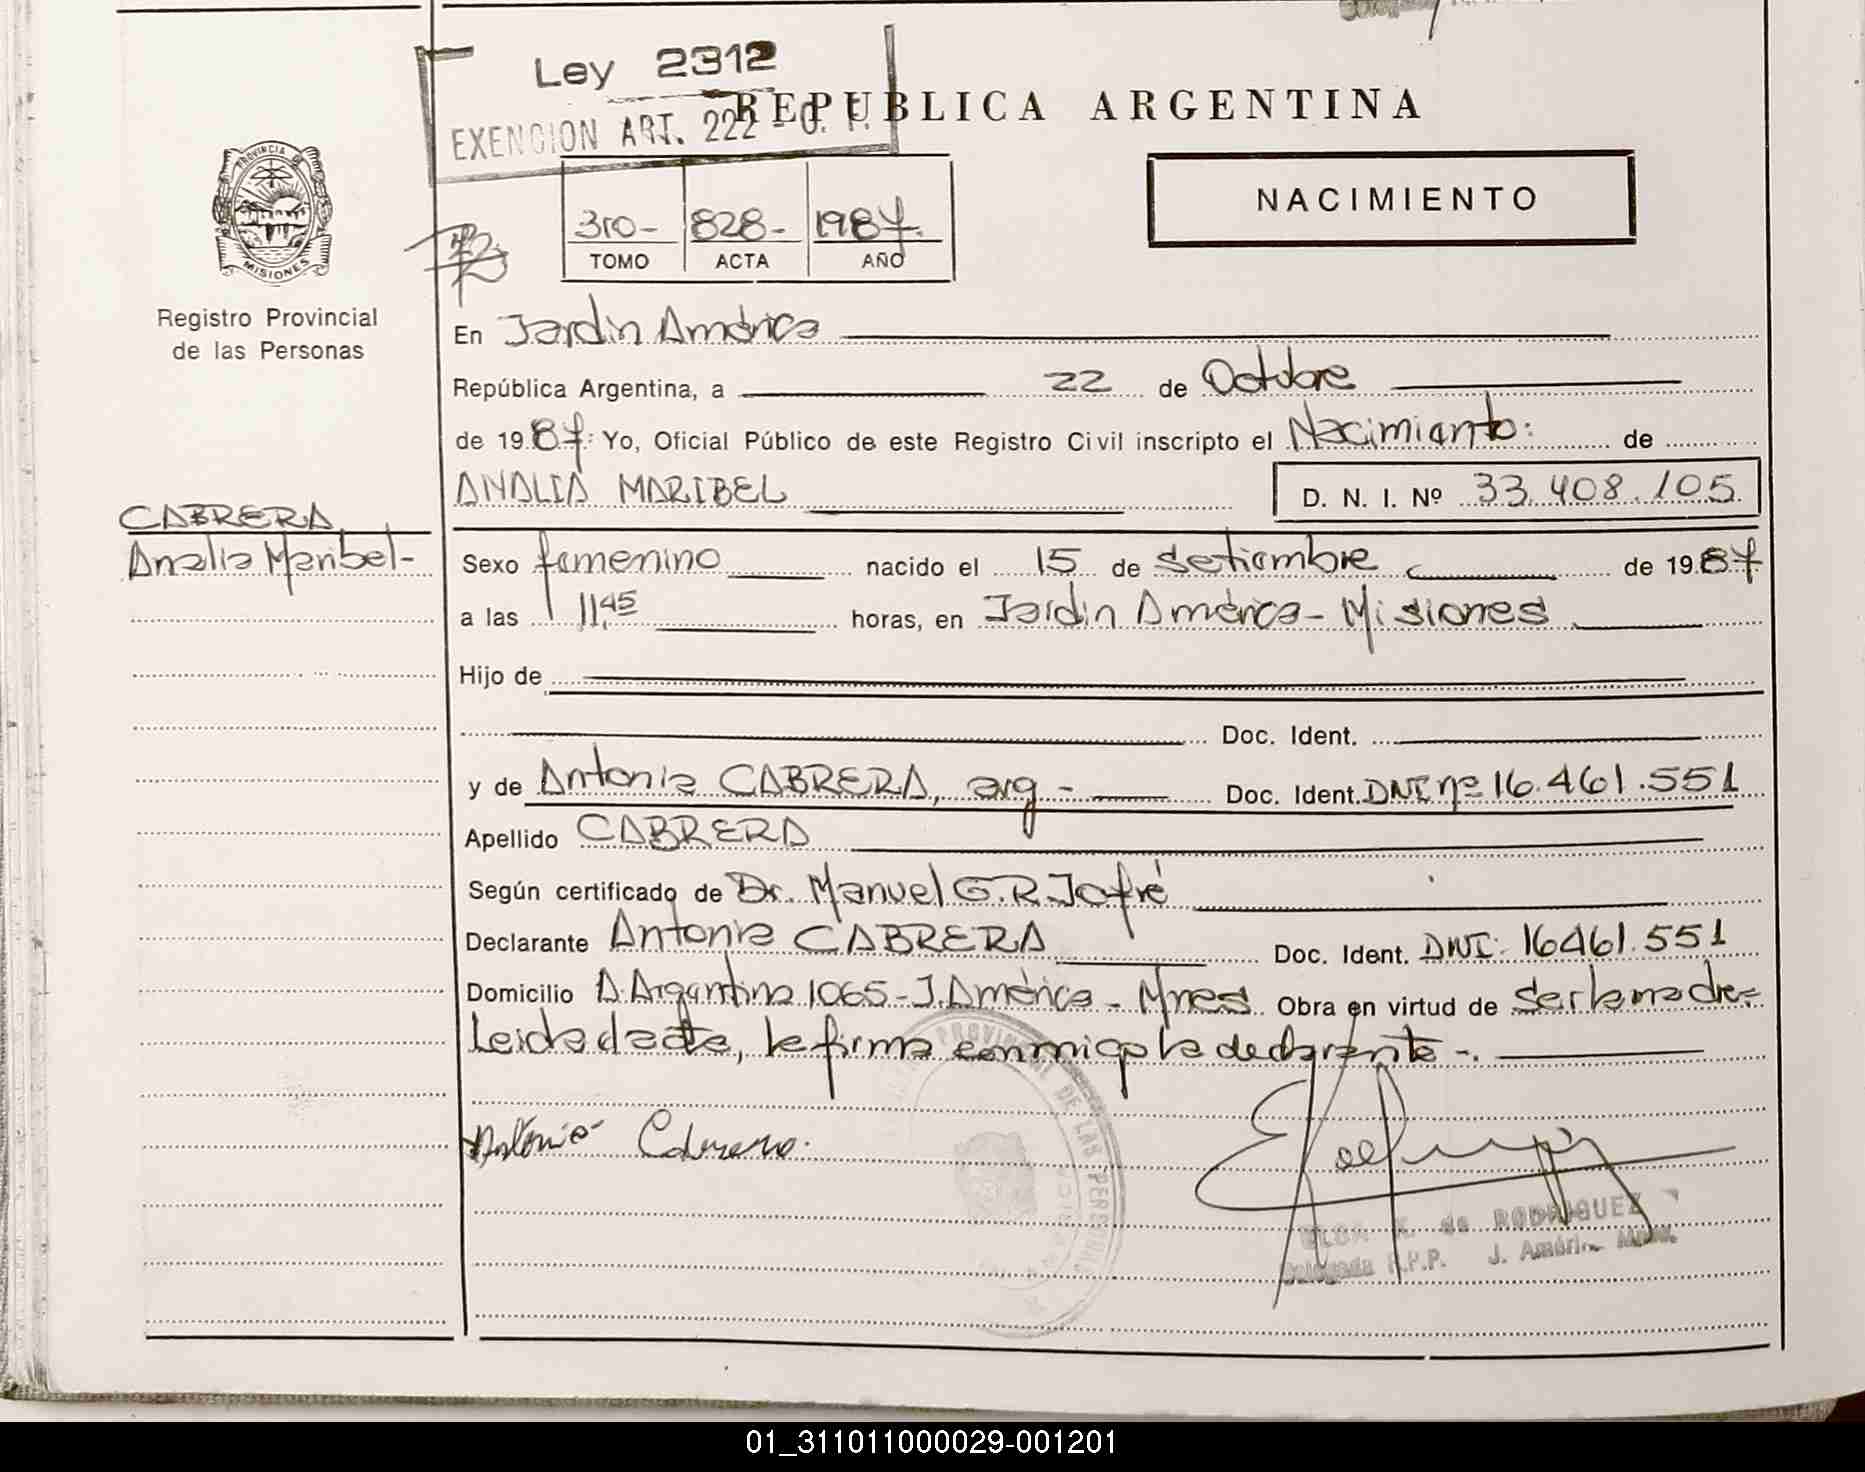 Ley 2312
EXENCION ART. 222 - C. F.
REPUBLICA ARGENTINA
NACIMIENTO
PROVINCIA DE
MISIONES
Registro Provincial
de las Personas
3ro- 828- 1987.
TOMO ACTA AÑO
En Jardin América
República Argentina, a 22 de Octubre
de 1987. Yo, Oficial Público de este Registro Civil inscripto el Nacimiento: de
ANALIA MARIBEL D. N. I. Nº 33.408.105
CABRERA
Analia Maribel-
Sexo femenino nacido el 15 de Setiembre de 1987
a las 11,45 horas, en Jardin América - Misiones
Hijo de
Doc. Ident.
y de Antonia CABRERA, arg - Doc. Ident. DNI nº 16.461.551
Apellido CABRERA
Según certificado de Dr. Manuel G.R. Jofré
Declarante Antonia CABRERA Doc. Ident. DNI: 16461.551
Domicilio A. Argentina 1065 - J. América - Mnes Obra en virtud de ser la madre=
Leida el acta, la firma conmigo la declarante -.
Antonia Cabrera.
PROVINCIAL DE LAS PERSONAS
de RODRIGUEZ
Delegada R.P.P. J. Améri
01_311011000029-001201